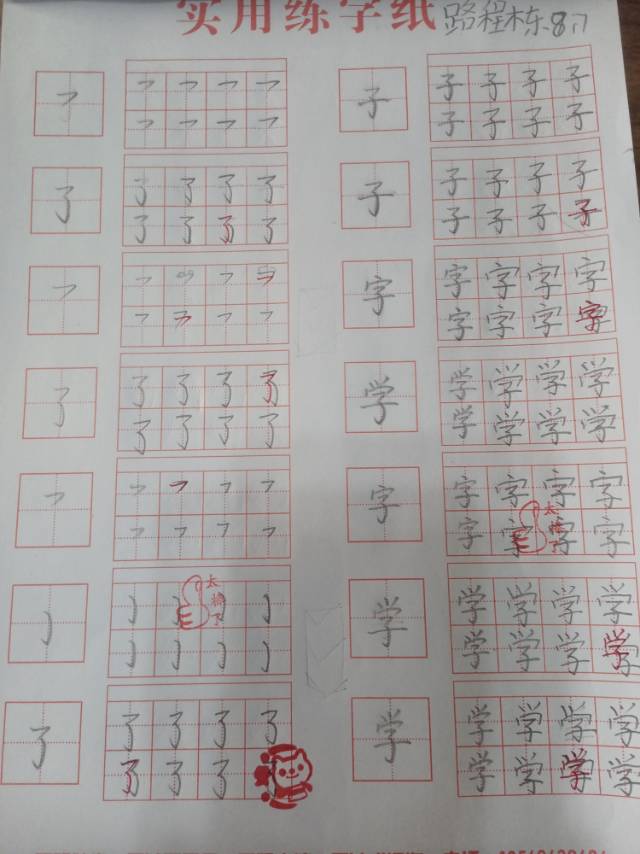 实用练字纸 路程栋 8.7
㇇ ㇇ ㇇ ㇇ ㇇ 子 子 子 子 子
㇇ ㇇ ㇇ ㇇ 子 子 子 子
了 了 了 了 了 子 子 子 子 子
了 了 了 了 子 子 子 子
㇇ ㇇ ㇇ ㇇ 字 字 字 字 字
㇇ ㇇ ㇇ ㇇ 字 字 字 字
了 了 了 了 了 学 学 学 学 学
了 了 了 了 学 学 学 学
㇇ ㇇ ㇇ ㇇ ㇇ 字 字 字 字 字
㇇ ㇇ ㇇ ㇇ 字 字 字 字
太棒了
亅 亅 亅 亅 亅 学 学 学 学 学
亅 亅 亅 亅 学 学 学 学
太棒了
了 了 了 了 了 学 学 学 学 学
了 了 了 学 学 学 学